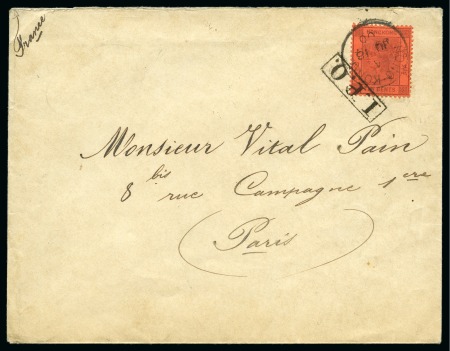 France
I.P.O.
Monsieur Vital Pain
8 bis rue Campagne 1ère
(Paris)